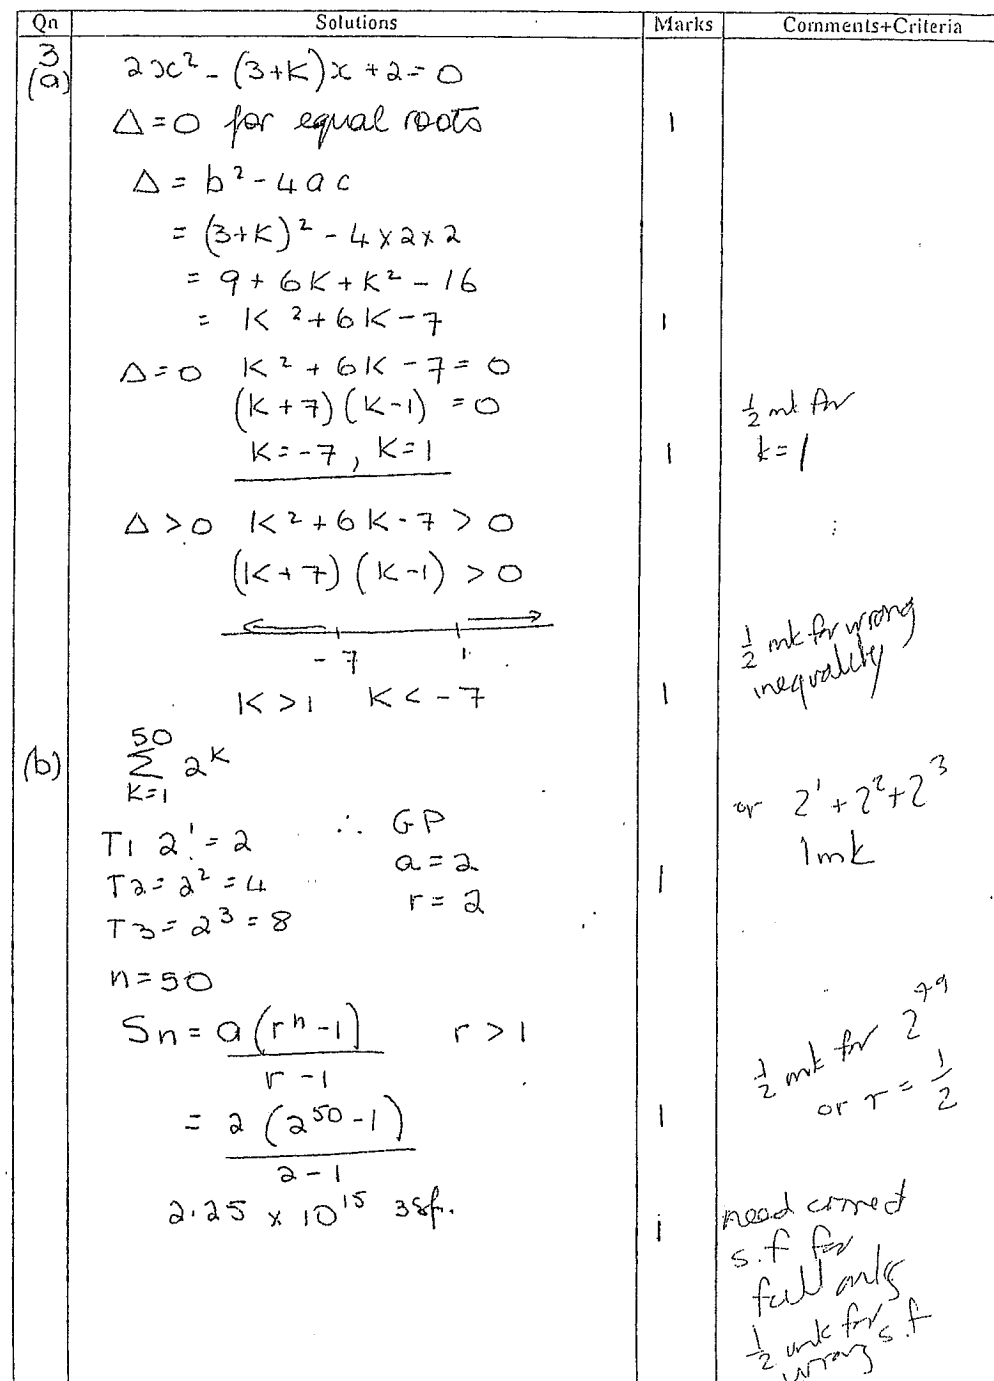 Qn Solutions Marks Comments+Criteria
3
(a) 2x² - (3+K)x + 2 = 0
Δ = 0 for equal roots 1
Δ = b² - 4ac
= (3+K)² - 4 x 2 x 2
= 9 + 6K + K² - 16
= K² + 6K - 7 1
Δ = 0 K² + 6K - 7 = 0
(K + 7) (K - 1) = 0 ½ mk for
K = -7, K = 1 1 k = 1
Δ > 0 K² + 6K - 7 > 0
(K + 7) (K - 1) > 0
-7 1 ½ mk for wrong
inequality
K > 1 K < -7 1
(b) 50
Σ 2^K
K=1
or 2¹ + 2² + 2³
1mk
T1 2¹ = 2 ∴ GP
T2 = 2² = 4 a = 2 1
T3 = 2³ = 8 r = 2
n = 50
Sn = a(rⁿ - 1) r > 1
r - 1
½ mk for 2⁴⁹
or r = ½
= 2 (2⁵⁰ - 1) 1
2 - 1
2.25 x 10¹⁵ 3sf. 1
need correct
s.f for
full
½ mk for
wrong s.f